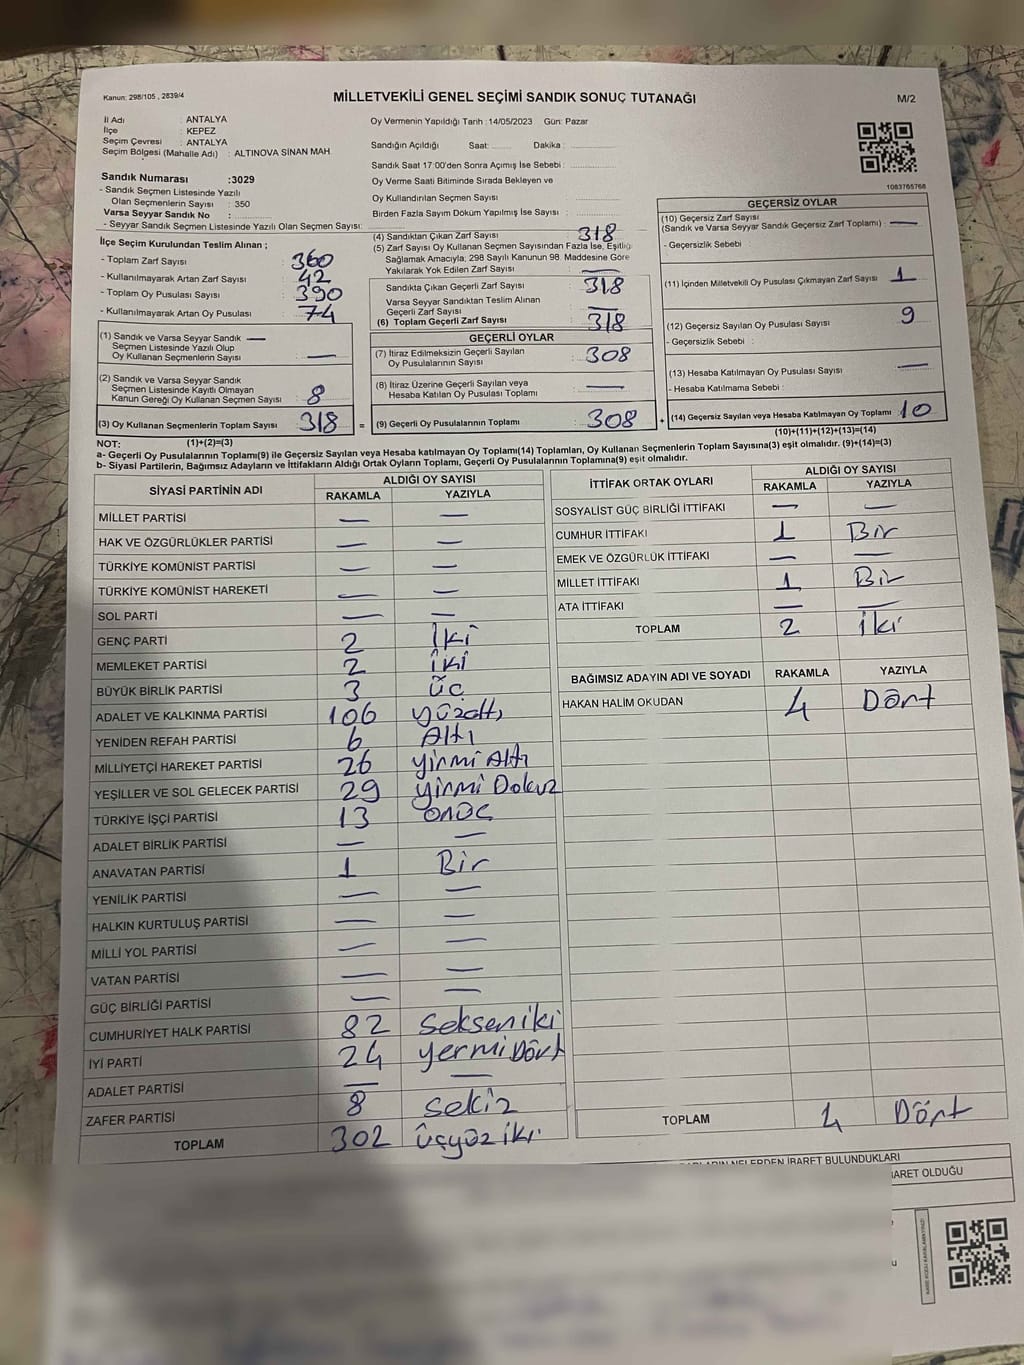 Kanun: 298/105 , 2839/4
MİLLETVEKİLİ GENEL SEÇİMİ SANDIK SONUÇ TUTANAĞI
M/2
İl Adı : ANTALYA
İlçe : KEPEZ
Seçim Çevresi : ANTALYA
Seçim Bölgesi (Mahalle Adı) : ALTINOVA SİNAN MAH.
Sandık Numarası :3029
- Sandık Seçmen Listesinde Yazılı
Olan Seçmenlerin Sayısı : 350
Varsa Seyyar Sandık No :
- Seyyar Sandık Seçmen Listesinde Yazılı Olan Seçmen Sayısı:
Oy Vermenin Yapıldığı Tarih :14/05/2023 Gün: Pazar
Sandığın Açıldığı Saat: Dakika :
Sandık Saat 17:00'den Sonra Açımış İse Sebebi :
Oy Verme Saati Bitiminde Sırada Bekleyen ve
Oy Kullandırılan Seçmen Sayısı :
Birden Fazla Sayım Döküm Yapılmış İse Sayısı :
1083765766
İlçe Seçim Kurulundan Teslim Alınan ;
- Toplam Zarf Sayısı : 360
- Kullanılmayarak Artan Zarf Sayısı : 42
- Toplam Oy Pusulası Sayısı : 390
- Kullanılmayarak Artan Oy Pusulası : 74
(1) Sandık ve Varsa Seyyar Sandık —
Seçmen Listesinde Yazılı Olup
Oy Kullanan Seçmenlerin Sayısı : —
(2) Sandık ve Varsa Seyyar Sandık
Seçmen Listesinde Kayıtlı Olmayan
Kanun Gereği Oy Kullanan Seçmen Sayısı : 8
(3) Oy Kullanan Seçmenlerin Toplam Sayısı : 318 =
(4) Sandıktan Çıkan Zarf Sayısı : 318
(5) Zarf Sayısı Oy Kullanan Seçmen Sayısından Fazla İse, Eşitliği
Sağlamak Amacıyla, 298 Sayılı Kanunun 98. Maddesine Göre
Yakılarak Yok Edilen Zarf Sayısı : —
Sandıkta Çıkan Geçerli Zarf Sayısı : 318
Varsa Seyyar Sandıktan Teslim Alınan
Geçerli Zarf Sayısı : —
(6) Toplam Geçerli Zarf Sayısı : 318
GEÇERLİ OYLAR
(7) İtiraz Edilmeksizin Geçerli Sayılan
Oy Pusulalarının Sayısı : 308
(8) İtiraz Üzerine Geçerli Sayılan veya
Hesaba Katılan Oy Pusulası Toplamı : —
(9) Geçerli Oy Pusulalarının Toplamı : 308 +
GEÇERSİZ OYLAR
(10) Geçersiz Zarf Sayısı
(Sandık ve Varsa Seyyar Sandık Geçersiz Zarf Toplamı) : —
- Geçersizlik Sebebi :
(11) İçinden Milletvekili Oy Pusulası Çıkmayan Zarf Sayısı : 1
(12) Geçersiz Sayılan Oy Pusulası Sayısı : 9
- Geçersizlik Sebebi :
(13) Hesaba Katılmayan Oy Pusulası Sayısı : —
- Hesaba Katılmama Sebebi :
(14) Geçersiz Sayılan veya Hesaba Katılmayan Oy Toplamı : 10
NOT: (1)+(2)=(3) (10)+(11)+(12)+(13)=(14)
a- Geçerli Oy Pusulalarının Toplamı(9) ile Geçersiz Sayılan veya Hesaba katılmayan Oy Toplamı(14) Toplamları, Oy Kullanan Seçmenlerin Toplam Sayısına(3) eşit olmalıdır. (9)+(14)=(3)
b- Siyasi Partilerin, Bağımsız Adayların ve İttifakların Aldığı Ortak Oyların Toplamı, Geçerli Oy Pusulalarının Toplamına(9) eşit olmalıdır.
SİYASİ PARTİNİN ADI ALDIĞI OY SAYISI
RAKAMLA YAZIYLA
MİLLET PARTİSİ — —
HAK VE ÖZGÜRLÜKLER PARTİSİ — —
TÜRKİYE KOMÜNİST PARTİSİ — —
TÜRKİYE KOMÜNİST HAREKETİ — —
SOL PARTİ — —
GENÇ PARTİ 2 İki
MEMLEKET PARTİSİ 2 iki
BÜYÜK BİRLİK PARTİSİ 3 üç
ADALET VE KALKINMA PARTİSİ 106 yüzaltı
YENİDEN REFAH PARTİSİ 6 Altı
MİLLİYETÇİ HAREKET PARTİSİ 26 yirmi Altı
YEŞİLLER VE SOL GELECEK PARTİSİ 29 yirmi Dokuz
TÜRKİYE İŞÇİ PARTİSİ 13 onüç
ADALET BİRLİK PARTİSİ — —
ANAVATAN PARTİSİ 1 Bir
YENİLİK PARTİSİ — —
HALKIN KURTULUŞ PARTİSİ — —
MİLLİ YOL PARTİSİ — —
VATAN PARTİSİ — —
GÜÇ BİRLİĞİ PARTİSİ — —
CUMHURİYET HALK PARTİSİ 82 sekseniki
İYİ PARTİ 24 yermi Dört
ADALET PARTİSİ — —
ZAFER PARTİSİ 8 sekiz
TOPLAM 302 üçyüz iki
İTTİFAK ORTAK OYLARI ALDIĞI OY SAYISI
RAKAMLA YAZIYLA
SOSYALİST GÜÇ BİRLİĞİ İTTİFAKI — —
CUMHUR İTTİFAKI 1 Bir
EMEK VE ÖZGÜRLÜK İTTİFAKI — —
MİLLET İTTİFAKI 1 Bir
ATA İTTİFAKI — —
TOPLAM 2 iki
BAĞIMSIZ ADAYIN ADI VE SOYADI RAKAMLA YAZIYLA
HAKAN HALİM OKUDAN 4 Dört
TOPLAM 4 Dört
NELERDEN İBARET BULUNDUKLARI
OLDUĞU